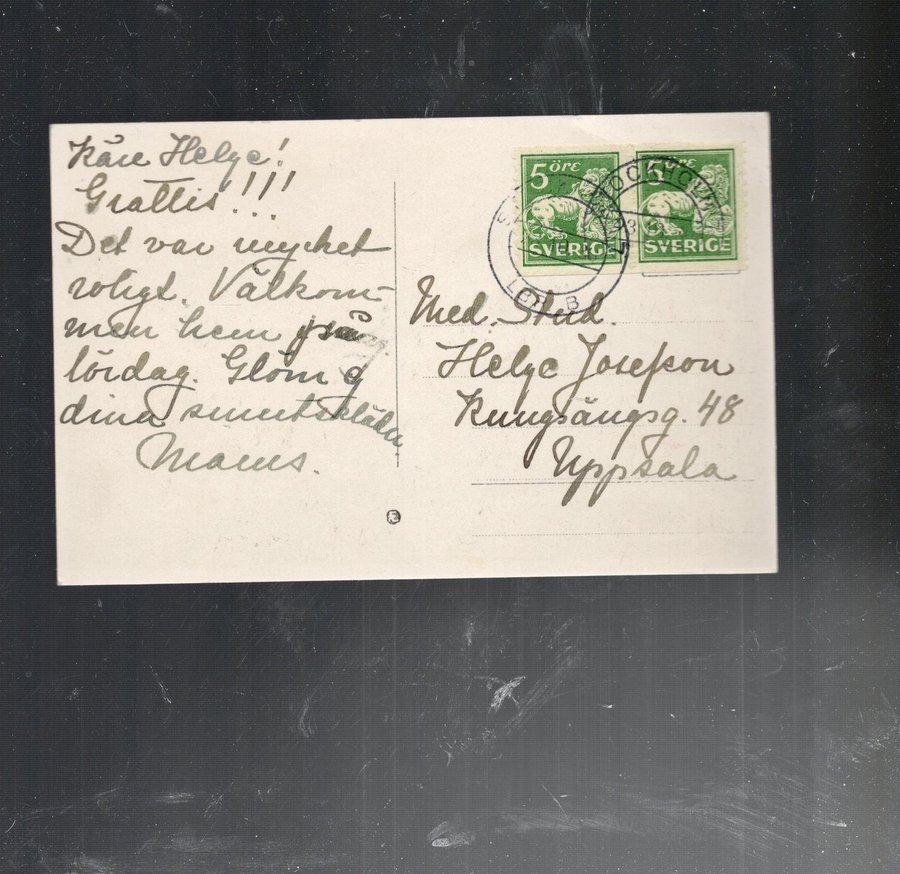 Käre Helge!
Grattis!!!
Det var mycket
roligt. Välkom-
men hem på
lördag. Glöm ej
dina smutskläder
Mams.
5 ÖRE
SVERIGE
5 ÖRE
SVERIGE
STOCKHOLM
LBR. B
Med. Stud.
Helge Josefson
Kungsängsg. 48
Uppsala